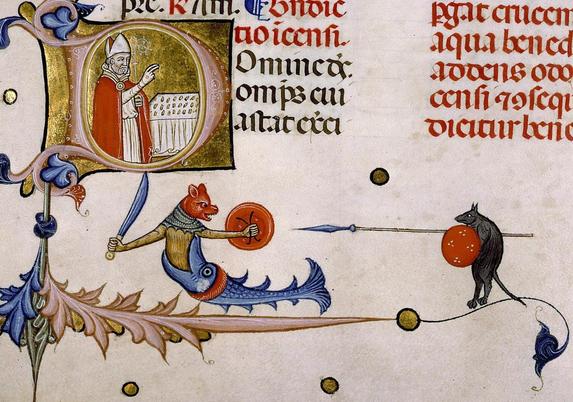 pre. R. Am. Bndic
tio icensi.
Omine ds
omps cui
astat exci
pgat crucem
aqua bened
addens odo
censi ⁊ sequ
dicitur bene